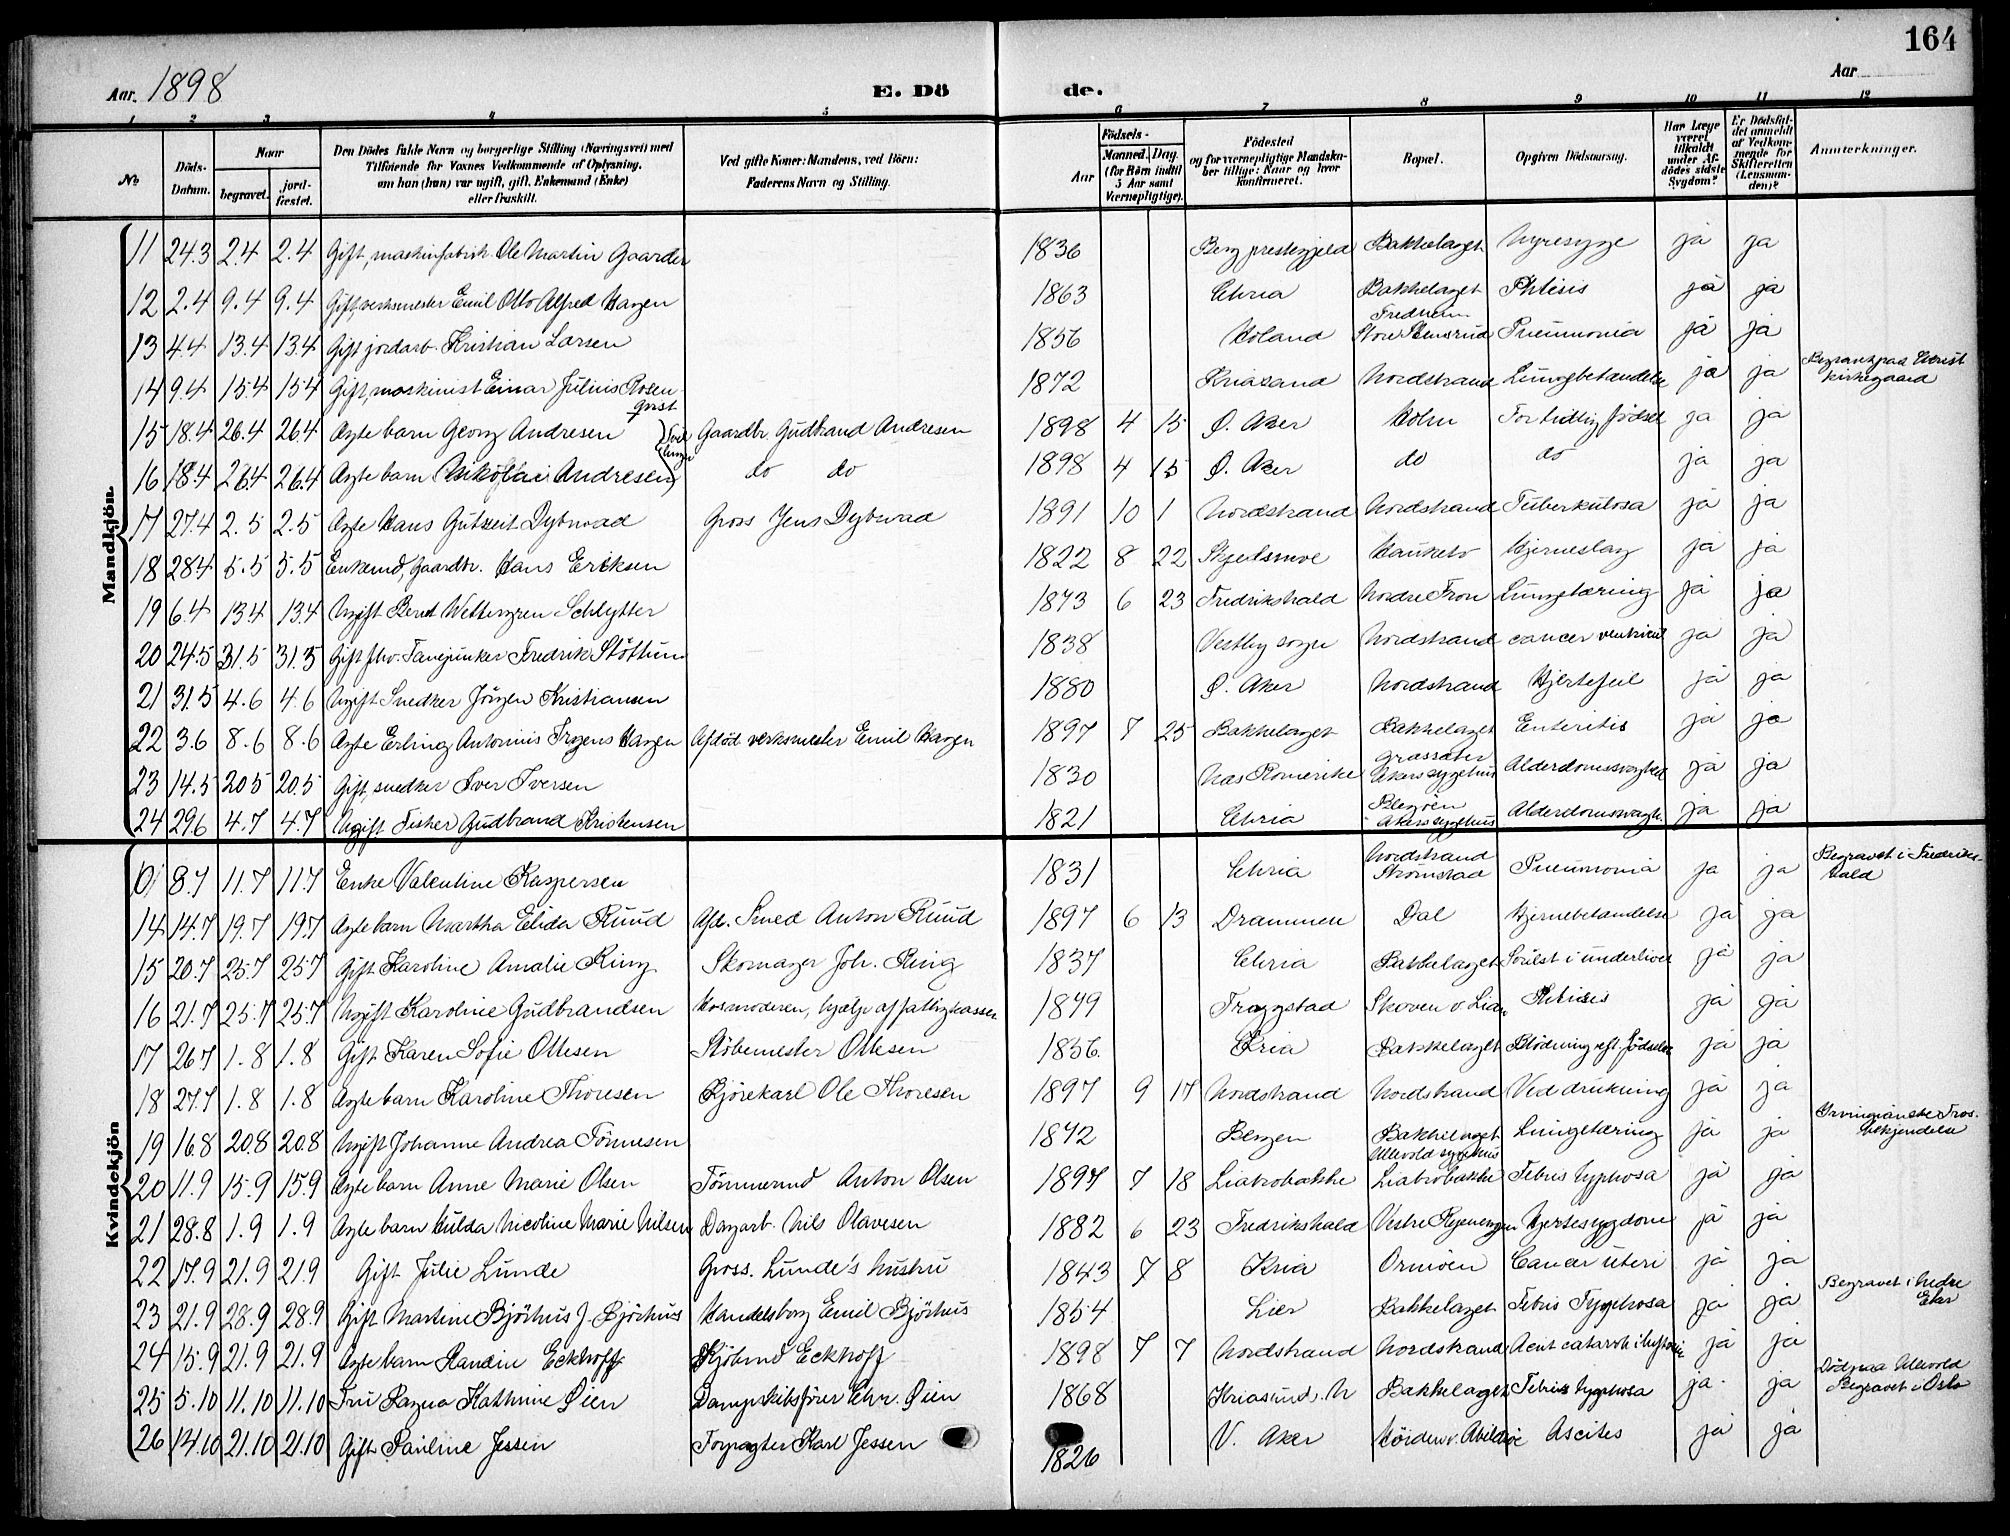 164
Aar. 1898
E. Dö de.
Aar
1 2 3 4 5 6 7 8 9 10 11 12
No
Döds-Datum.
Naar
begravet.
jord-fæstet.
Den Dödes fulde Navn og borgerlige Stilling (Næringsvei) med
Tilföiende for Voxnes Vedkommende af Oplysning,
om han (hun) var ugift, gift, Enkemand (Enke)
eller fraskilt.
Ved gifte Koner: Mandens, ved Börn:
Faderens Navn og Stilling.
Födsels-
Aar
Maaned. Dag.
(for Börn indtil
5 Aar samt
Værnepligtige).
Födested
og for værnepligtige Mandska-
ber tillige: Naar og hvor
konfirmeret.
Bopæl.
Opgiven Dödsaarsag.
Har Læge
været
tilkaldt
under Af-
dödes sidste
Sygdom?
Er Dödsfal-
det anmeldt
af Vedkom-
mende for
Skifteretten
(Lensman-
den)?
Anmerkninger.
Mandkjön.
11 24.3 2.4 2.4 Gift, maskinfabrik. Ole Martin Gaarder 1836 Berg prestegjeld Bakkelaget Nyresyge ja ja
12 2.4 9.4 9.4 Gift, verksmester Emil Otto Alfred Hagen 1863 Chria Bakkelaget Phtisis ja ja
Fredheim
13 4.4 13.4 13.4 Gift jordarb. Kristian Larsen 1856 Höland Store Stensrud Pneumonia ja ja
14 9.4 15.4 15.4 Gift, maskinist Einar Julius Rosen- 1872 Kriasand Nordstrand Lungebetændelse ja ja Begravet paa Vestre
kirkegaard
qvist
15 18.4 26.4 26.4 Ægte barn Georg Andresen Tvil Gaardbr. Gudbrand Andresen 1898 4 15 Ö. Aker Holm For tidlig födsel ja ja
linger
16 18.4 26.4 26.4 Ægte barn Nikolai Andresen do do 1898 4 15 Ö. Aker do do ja ja
17 27.4 2.5 2.5 Ægte Hans Gutzeit Dybwad Gross Jens Dybwad 1891 10 1 Nordstrand Nordstrand Tuberkulosa ja ja
18 28.4 5.5 5.5 Enkemd, Gaardbr. Hans Eriksen 1822 8 22 Skjedsmoe Hauketo Hjerneslag ja ja
19 6.4 13.4 13.4 Ugift Bernt Wettergren Schlytter 1873 6 23 Fredrikshald Nordre Fron Lungetæring ja ja
20 24.5 31.5 31.5 Gift fhv. Fanejunker Fredrik Stöttum 1838 Vestby sogn Nordstrand cancer ventricul ja ja
21 31.5 4.6 4.6 Ugift Snedker Jörgen Kristiansen 1880 Ö. Aker Nordstrand Hjertefeil ja ja
22 3.6 8.6 8.6 Ægte Erling Antonius Trygens Hagen Afdöd verksmester Emil Hagen 1897 7 25 Bakkelaget Bakkelaget Enteritis ja ja
23 14.5 20.5 20.5 Gift, snedker Iver Iversen 1830 Næs Romerike Græssæter
Akers sygehus Alderdomssvaghed ja ja
24 29.6 4.7 4.7 Ugift Fisker Gudbrand Kristensen 1821 Chria Blegöen
Akers sygehus Alderdomssvagh. ja ja
Kvindekjön
8.7 11.7 11.7 Enke Valentine Kaspersen 1831 Chria Nordstrand
Strömstad Pneumonia ja ja Begravet i Fredriks-
hald
14 14.7 19.7 19.7 Ægte barn Martha Elida Ruud Afd. Smed Anton Ruud 1897 6 13 Drammen Dal Hjernebetændelse ja ja
15 20.7 25.7 25.7 Gift Karoline Amalie Ring Skomager Joh. Ring 1837 Chria Bakkelaget Svulst i underlivet ja ja
16 21.7 25.7 25.7 Ugift Karoline Gudbrandsen Hos moderen, hjælp af fattigkassen 1879 Trøgstad Skoven v. Lian Phtisis ja ja
17 26.7 1.8 1.8 Gift Karen Sofie Ottesen Stöbemester Ottesen 1856 Kria Bakkelaget Blödning eft. födselen ja ja
18 27.7 1.8 1.8 Ægte barn Karoline Thoresen Kjörekarl Ole Thoresen 1897 9 17 Nordstrand Nordstrand Ved drukning ja ja
19 16.8 20.8 20.8 Ugift Johanne Andrea Tönnesen 1872 Bergen Bakkelaget
Ullevold sygehus Lungetæring ja ja Irvingianske Tros-
bekjendelse
20 11.9 15.9 15.9 Ægte barn Anne Marie Olsen Tömmermd Anton Olsen 1897 7 18 Liabrobakke Liabrobakke Febris typhosa ja ja
21 28.8 1.9 1.9 Ægte barn Hulda Nicoline Marie Nilsen Dagarb. Nils Olavesen 1882 6 23 Fredrikshald Vestre Ryenengen Hjertesygdom ja ja
22 17.9 21.9 21.9 Gift Julie Lunde Gross. Lunde's hustru 1843 7 8 Kria Ormöen Cancer uteri ja ja
23 21.9 28.9 28.9 Gift Martine Björhus f. Björhus Handelsborg Emil Björhus 1854 Lier Bakkelaget Febris Typhosa ja ja Begravet i Nedre
Eker
24 15.9 21.9 21.9 Ægte barn Eckhoff Kjöbmd Eckhoff 1898 7 7 Nordstrand Nordstrand Acut catarrh i luftveie ja ja
25 5.10 11.10 11.10 Fru Ragna Kathrine Öien Dampskibsförer Chr. Öien 1868 Kriasund. N Bakkelaget Febris typhosa ja ja Död paa Ullevold
Begravet i Oslo
26 14.10 21.10 21.10 Gift Pauline Jessen Forpagter Karl Jessen 1826 V. Aker v. Abildsöe Ascites ja ja